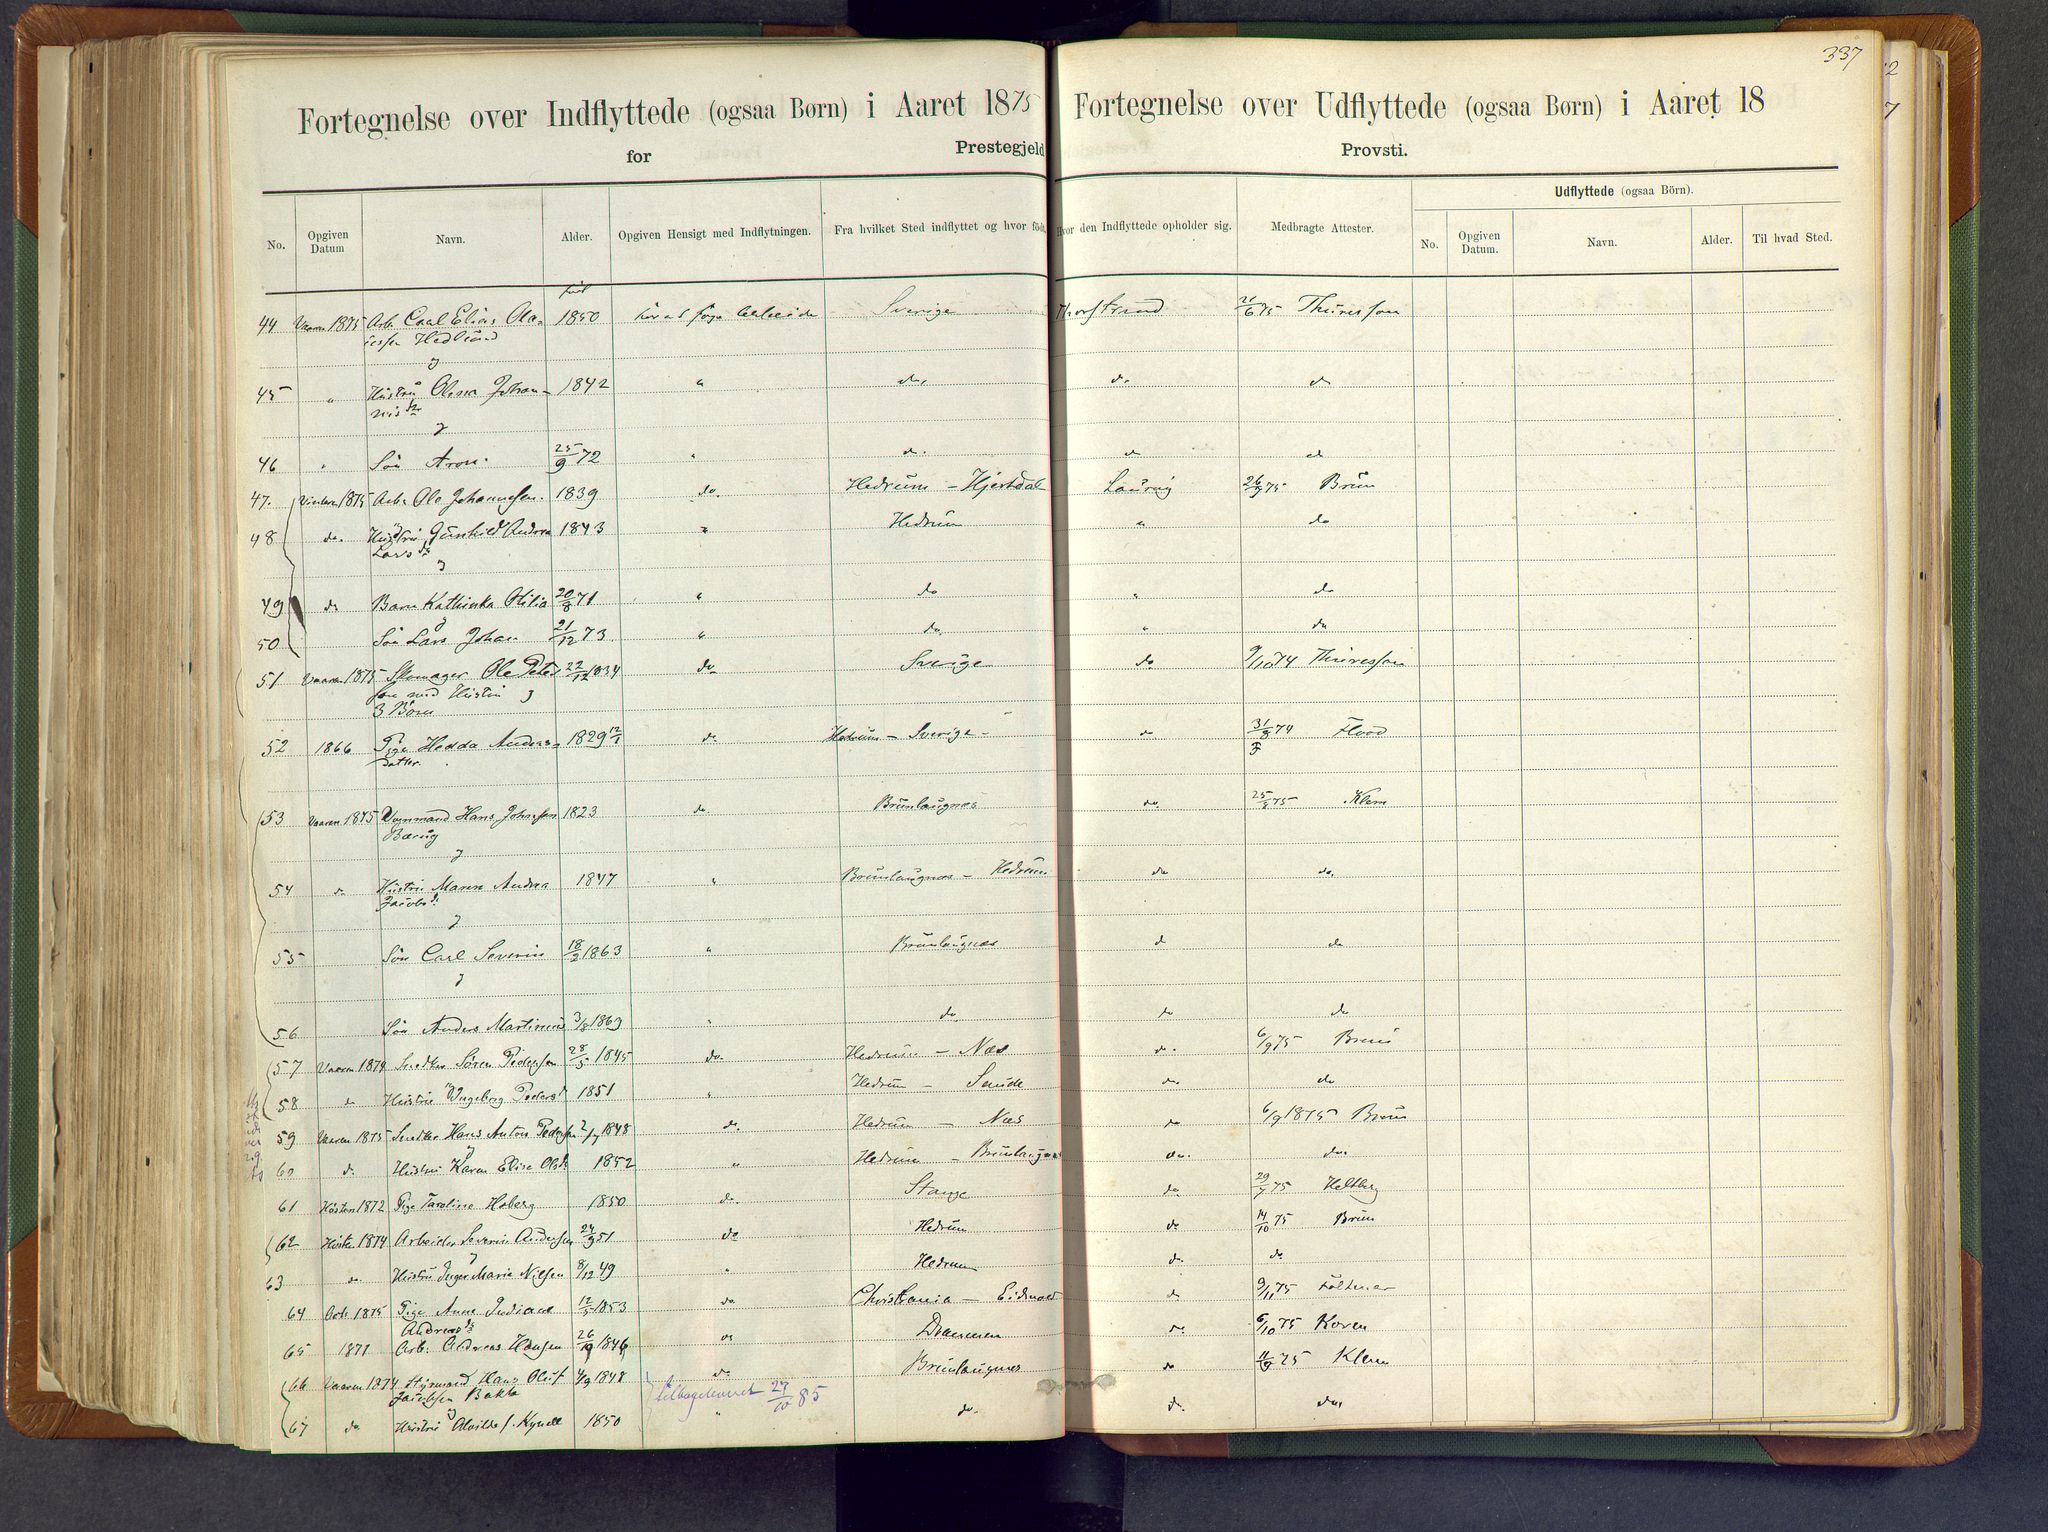 337
Fortegnelse over Indflyttede (ogsaa Børn) i Aaret 1875
for Prestegjeld
Fortegnelse over Udflyttede (ogsaa Børn) i Aaret 18
Provsti.
No. Opgiven Datum Navn. Alder. Opgiven Hensigt med Indflytningen. Fra hvilket Sted indflyttet og hvor født. Hvor den Indflyttede opholder sig. Medbragte Attester.
Udflyttede (ogsaa Börn).
No. Opgiven Datum. Navn. Alder. Til hvad Sted.
født
44 Vaaren 1875 Arb. Carl Elias 1850 Sverige Thorstrand 21/6 75 Thuresson
Hedlund
45 " Hustru Olena Johan- 1842 " do. do. do
nisdr
46 " Søn Aron 25/9 72 " do. do do
47. Vinteren 1875 Arb. Ole Johannesen 1839 do. Hedrum - Hjertdal Laurvig Brun
48 do. Hustru Gunhild Andrea 1843 " Hedrum " do
Larsdr
49 do Barn Kathinka Otilia 20/8 71 " do " do
50 Søn Lars Johan 21/12 73 " do. " do
51 Vaaren 1875 Skomager Ole Peter 22/12 1834 do. Sverige do 9/10 74 Thuresson
sen med Hustru &
3 Børn
52 1866 Pige Hedda Andreas- 1829 12/1 do Hedrum - Sverige - do 31/8 74 Flood
datter.
53 Vaaren 1875 Hans Johnsen 1823 do Brunlaugnæs do. 25/8 75 Klem
54 do Hustru Maren Andrea 1847 " Brunlaugnæs - Hedrum do do.
Jacobsdr
55 Søn Carl Severin 18/2 1863 " Brunlaugnæs do do
56 Søn Anders Martinius 3/8 1869 " do. do do
57 Vaaren 1874 Snedker Søren Pedersen 28/5 1845 do. Hedrum - Næs do. 6/9 75 Brun
58 do Hustru Ingeborg Pedersd 1851 " Hedrum - Saude do. do
59 Vaaren 1875 Snedker Hans Anton Pedersen 1848 do. Hedrum - Næs do 6/9 1875 Brun
60 do. Hustru Karen Elise Olsdr 1852 " Hedrum - Brunlaugnæs do. do.
61 Høsten 1872 Pige Caroline Hoberg 1850 do. Stange do. 29/7 75 Heltberg
62 Høsten 1874 Arbeider Severin Andersen 24/9 51 do Hedrum do 14/10 75 Brun
63 do. Hustru Inger Marie Nilsen 8/12 49 " Hedrum do. do
64 Octr 1875 Pige Anne Indiane 12/5 1853 do Christiania - Eidsvold do 9/11 75
Andreasdr
65 1871 Arb. Andreas Hansen 26/10 1846 do Drammen do. 6/10 75 Koren
66 Vaaren 1874 Styrmand Hans Oluf 1/9 1848 do Brunlaugnes do 11/9 75 Klem
Jacobsen Bakke
tilbageleveret 27/10 85
67 do. Hustru Alvilde f. Kynell 1850 " do. do. do.